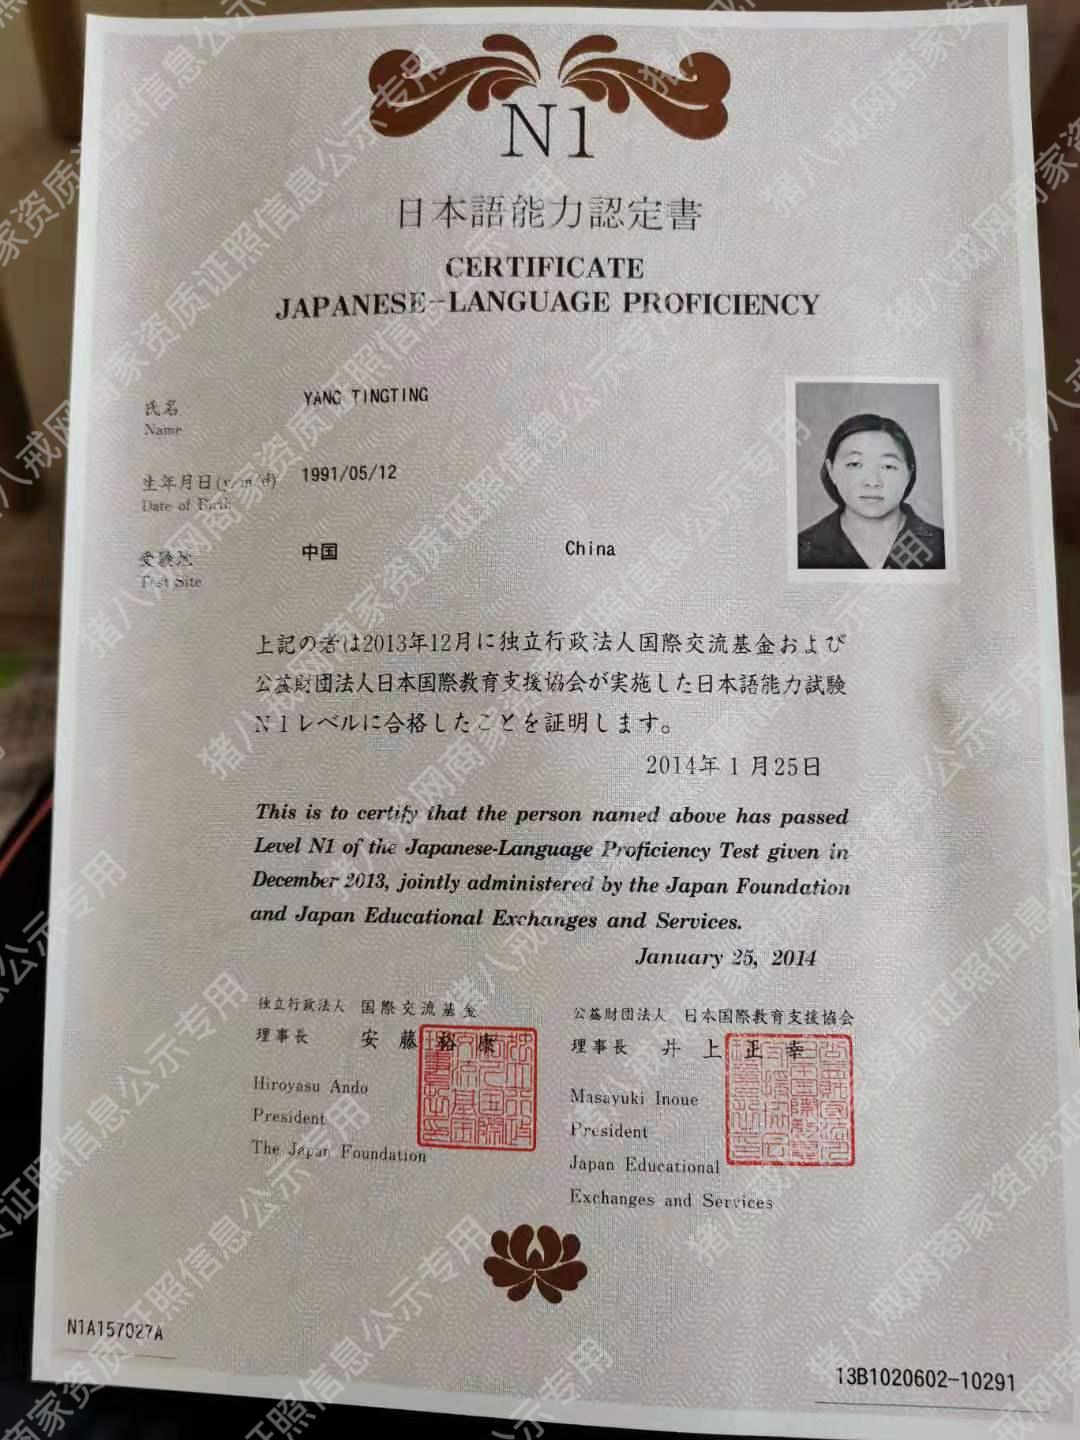 N1
日本語能力認定書
CERTIFICATE
JAPANESE-LANGUAGE PROFICIENCY
氏名
Name
YANG TINGTING
生年月日(y/m/d)
Date of Birth
1991/05/12
受験地
Test Site
中国 China
上記の者は2013年12月に独立行政法人国際交流基金および
公益財団法人日本国際教育支援協会が実施した日本語能力試験
N1レベルに合格したことを証明します。
2014年1月25日
This is to certify that the person named above has passed
Level N1 of the Japanese-Language Proficiency Test given in
December 2013, jointly administered by the Japan Foundation
and Japan Educational Exchanges and Services.
January 25, 2014
独立行政法人 国際交流基金
理事長 安藤裕康
Hiroyasu Ando
President
The Japan Foundation
公益財団法人 日本国際教育支援協会
理事長 井上正幸
Masayuki Inoue
President
Japan Educational
Exchanges and Services
N1A157027A
13B1020602-10291
猪八戒网商家资质证照信息公示专用